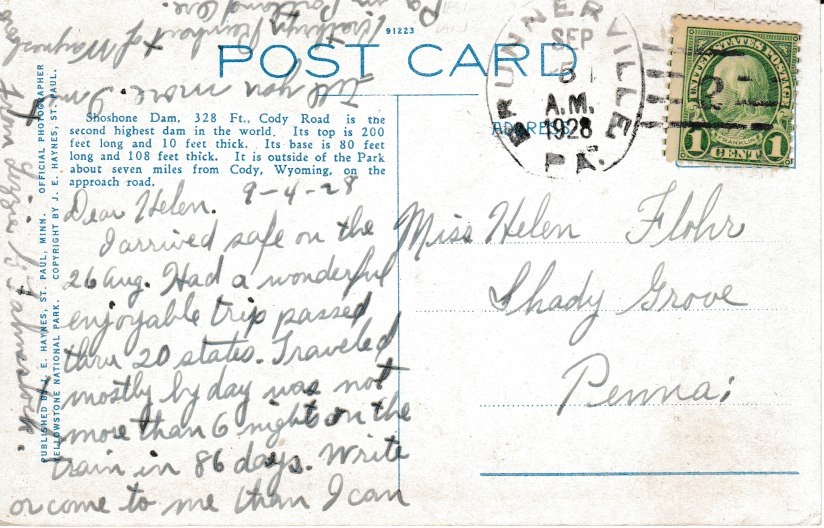 91223
POST CARD
Shoshone Dam, 328 Ft., Cody Road is the
second highest dam in the world. Its top is 200
feet long and 10 feet thick. Its base is 80 feet
long and 108 feet thick. It is outside of the Park
about seven miles from Cody, Wyoming, on the
approach road.
PUBLISHED BY J. E. HAYNES, ST. PAUL, MINN. OFFICIAL PHOTOGRAPHER
YELLOWSTONE NATIONAL PARK. COPYRIGHT BY J. E. HAYNES, ST. PAUL.
BRUNNERVILLE
PA.
SEP
5
A.M.
1928
UNITED STATES POSTAGE
FRANKLIN
1 CENT 1
ADDRESS
Dear Helen. 9-4-28
I arrived safe on the
26 Aug. Had a wonderful
enjoyable trip passed
thru 20 states. Traveled
mostly by day was not
more than 6 nights on the
train in 86 days. Write
or come to me than I can
tell you more. I
from Lizzie
Fahnestock.
Miss Helen Flohr
Shady Grove
Penna;